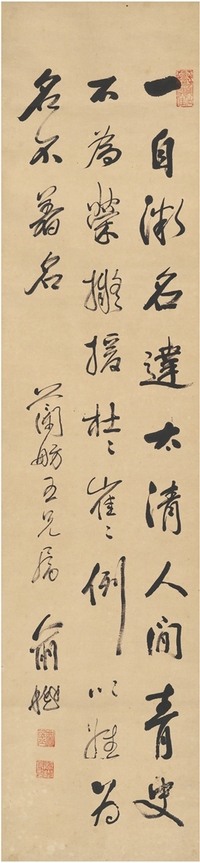 一自微名達太清人間青史
不為榮擬援杜〻崔〻例以姓為
名不著名
蘭舫五兄屬 俞樾